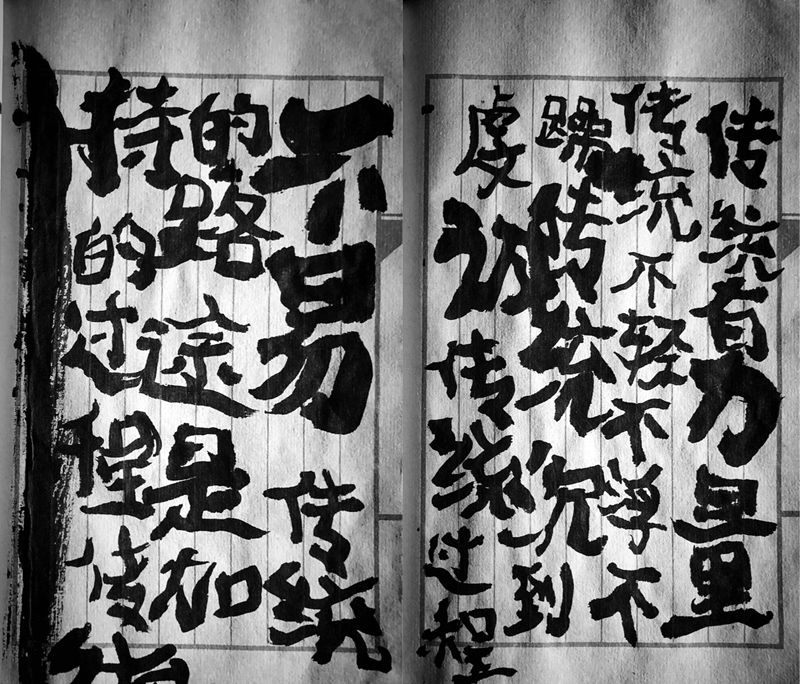 传统有力量
传统不轻不浮不
躁传统沉到
虔传统过程
不易传统
的路途是加
持的过程传统